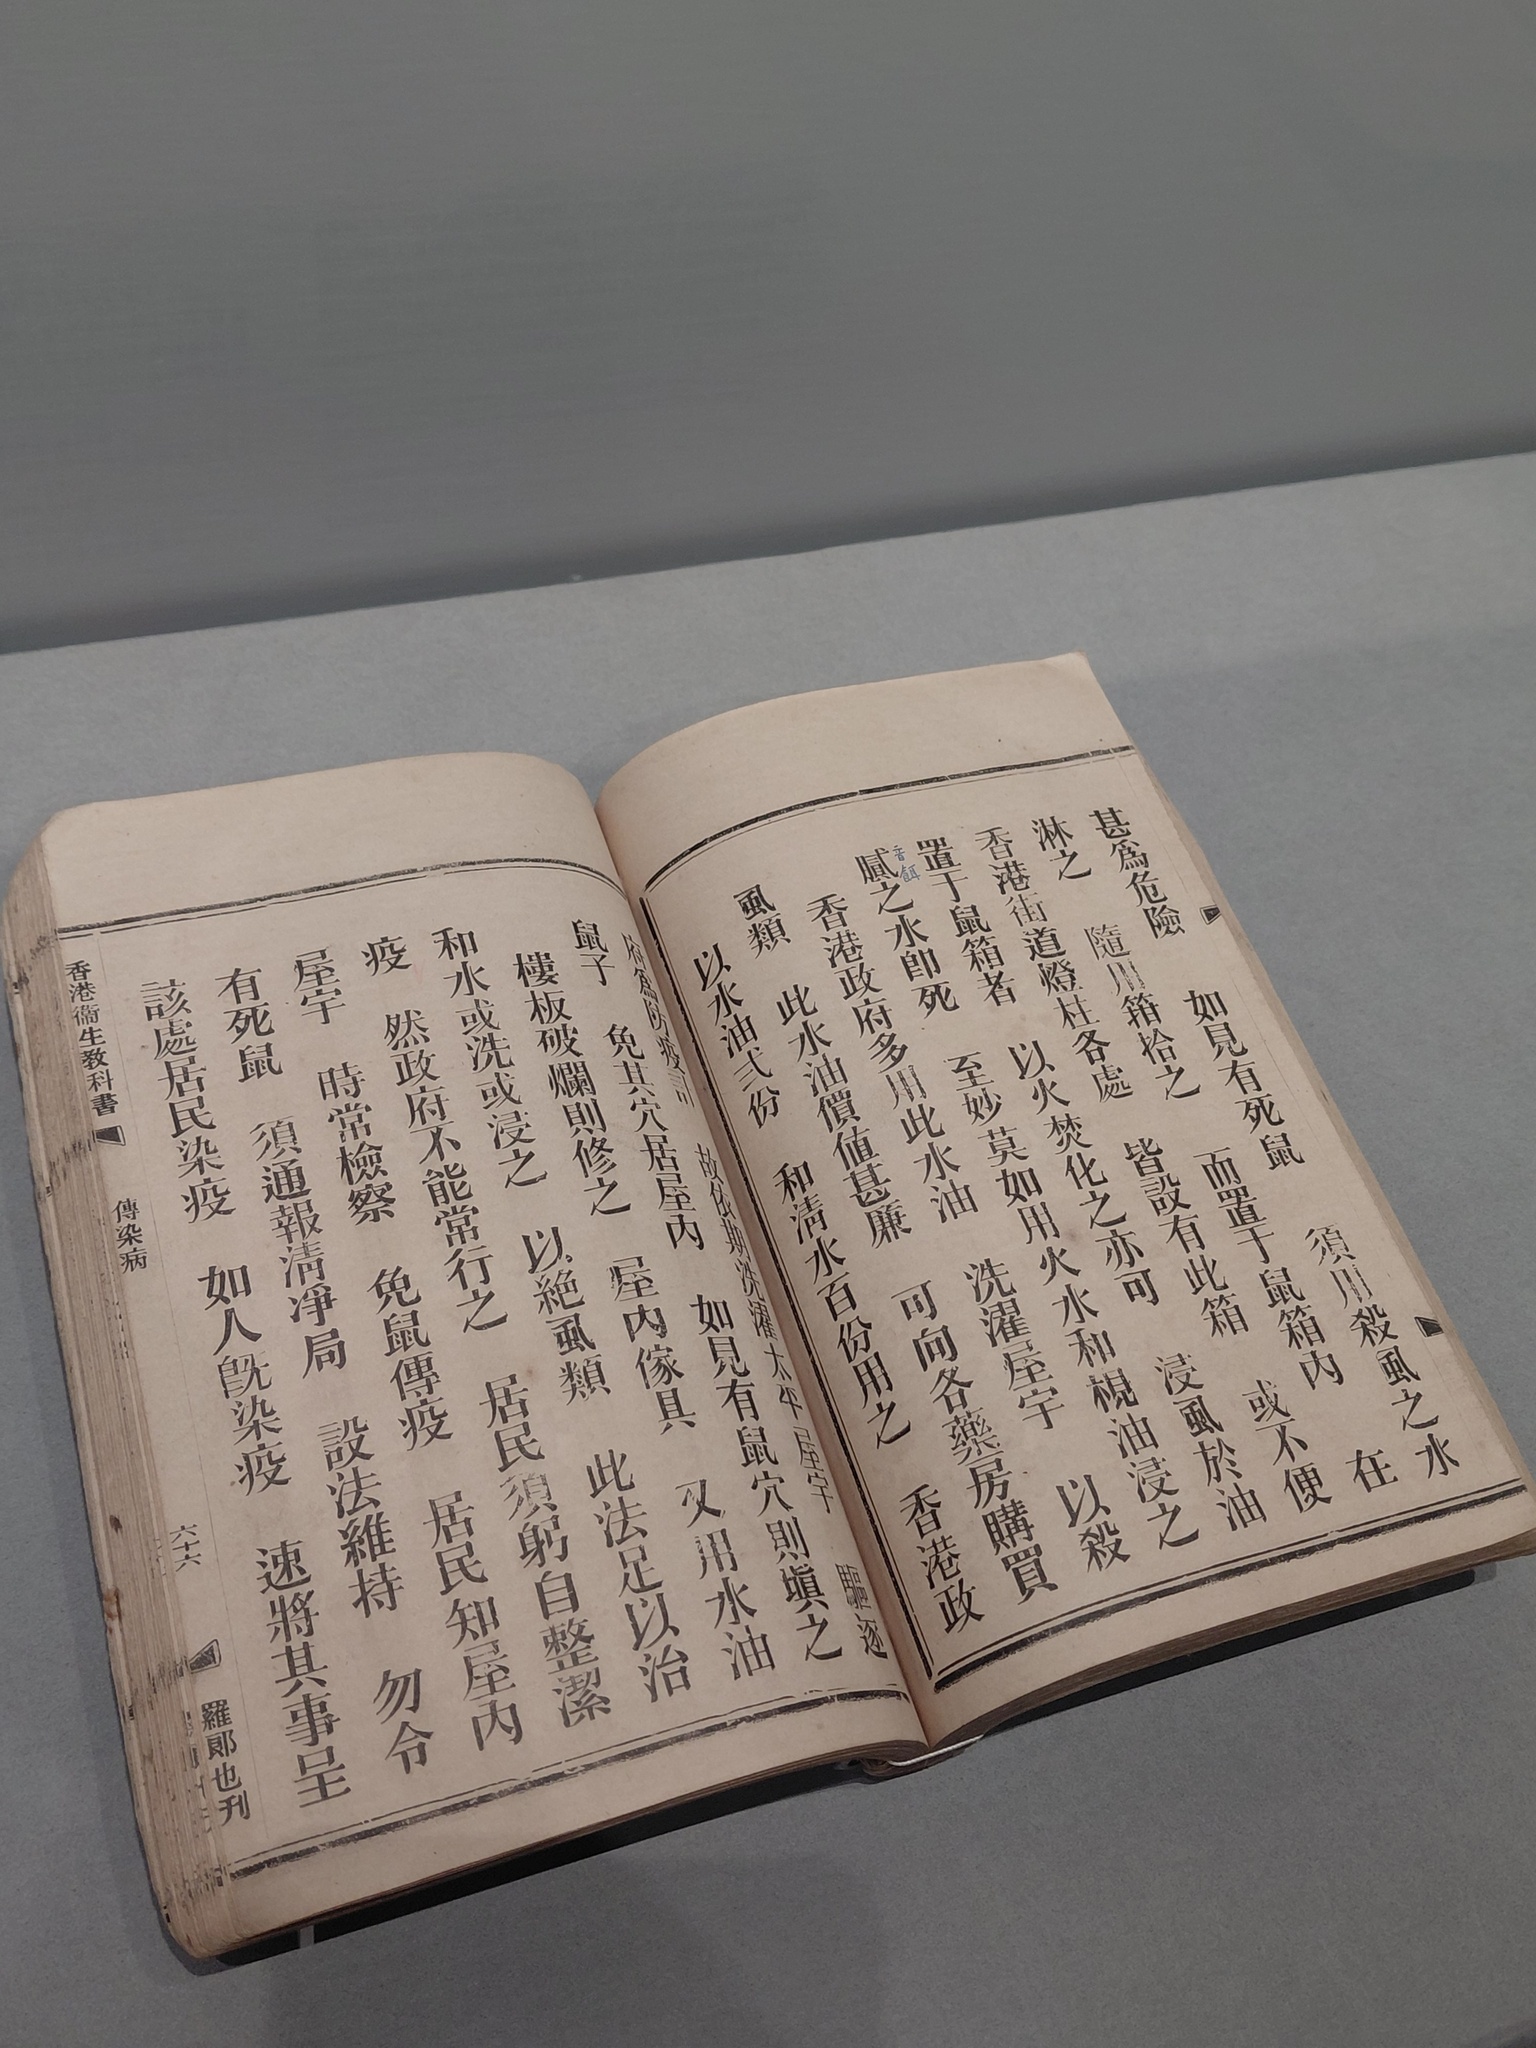 甚為危險　如見有死鼠　須用殺虱之水
淋之　隨用箱拾之　而置于鼠箱內　或不便　在
香港街道燈柱各處　皆設有此箱　浸虱於油
置于鼠箱者　以火焚化之亦可
膩之水即死　至妙莫如用火水和梘油浸之　以殺
音餌
香港政府多用此水油　洗濯屋宇
虱類　此水油價值甚廉　可向各藥房購買
以水油弍份　和清水百份用之　香港政
府為防疫計　故依期洗濯太平屋宇　驅逐
鼠子　免其穴居屋內　如見有鼠穴則塡之
樓板破爛則修之　屋內傢具　又用水油
和水或洗或浸之　以絕虱類　此法足以治
疫　然政府不能常行之　居民須躬自整潔
屋宇　時常檢察　免鼠傳疫　居民知屋內
有死鼠　須通報清淨局　設法維持　勿令
該處居民染疫　如人旣染疫　速將其事呈
香港衞生教科書　傳染病　六十六　羅郎也刊